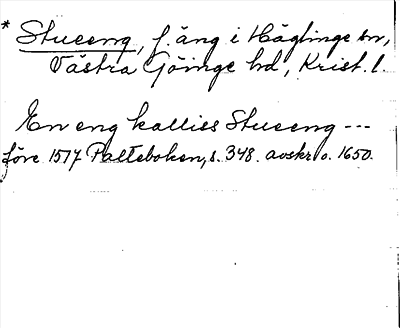 * Stuceng, f. äng i Häglinge sn,
Västra Göinge hd, Krist. l.
En eng kalliss Stuceng ---
före 1517 Palteboken, s. 348. avskr. o. 1650.